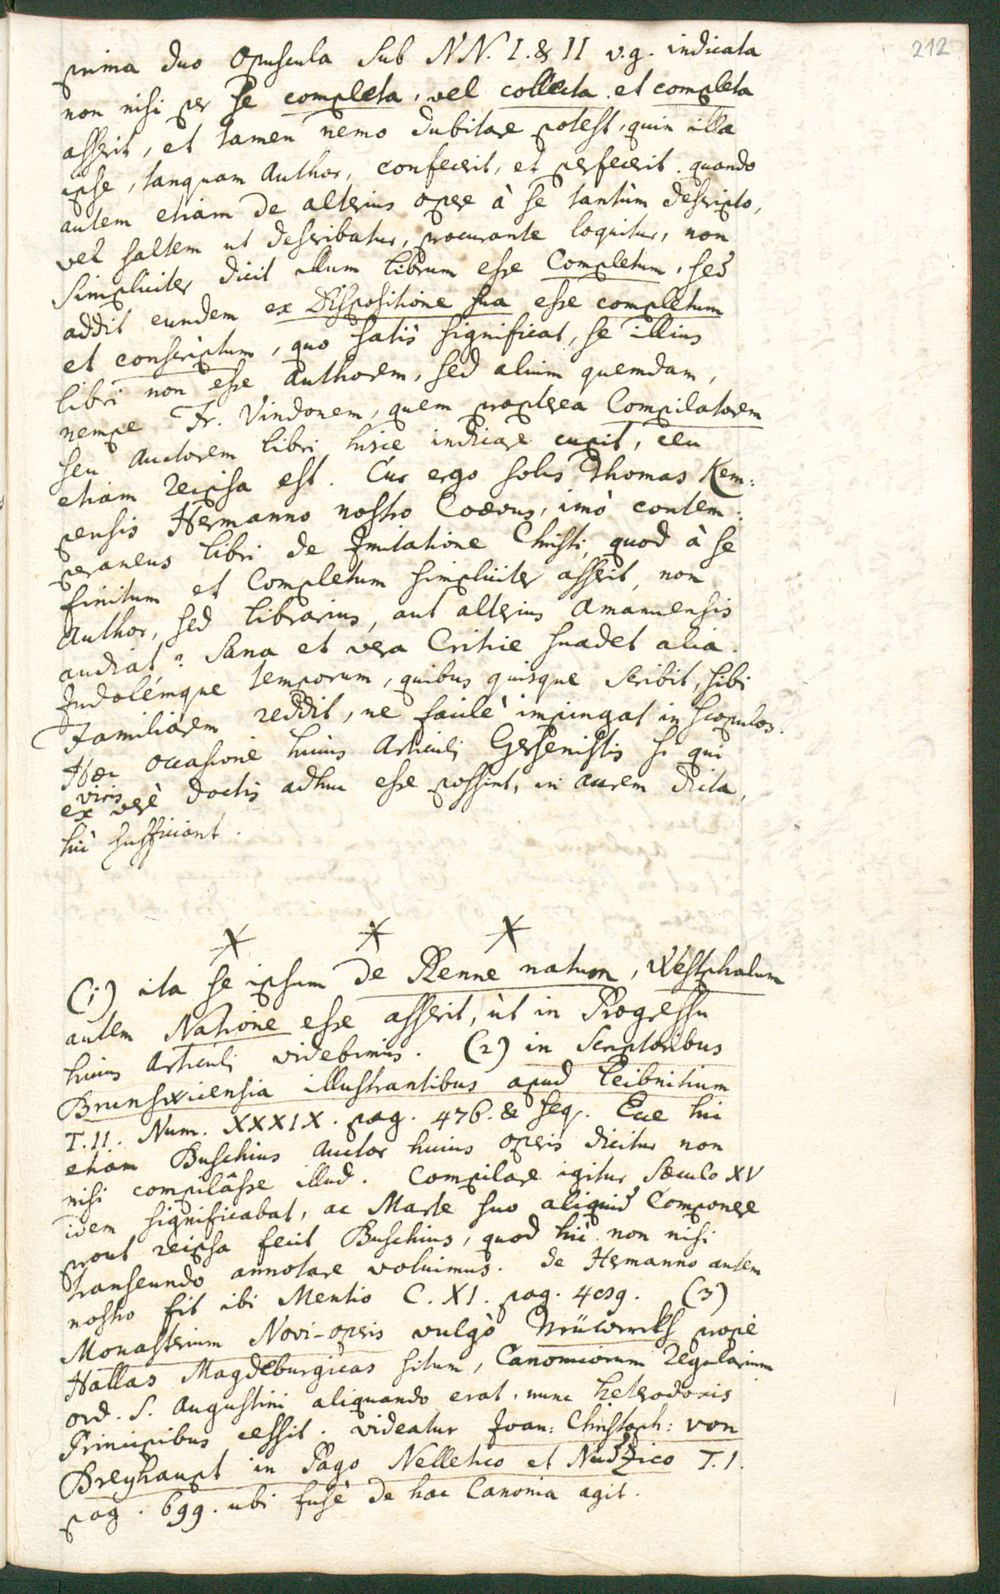 212
prima duo Opuscula sub NN. I. & II v.g. indicata
non nisi per se completa, vel collecta et completa
asserit, et tamen nemo dubitare potest, quin illa
ipse, tanquam Author, confecerit, et perfecerit. quando
autem etiam de alterius opere à se tantùm descripto,
vel saltem ut describatur, procurante loquitur, non
simpliciter dicit illum librum esse Completum, sed
addit eundem ex Dispositione sua esse completum
et conscriptum, quo satis significat, se illius
libri non esse authorem, sed alium quemdam,
nempe Fr. Vindonem, quem propterea Compilatorem
seu Auctorem libri huius indicare cupit, ceu
etiam reipsa est. Cur ergo solus Thomas Kem:
pensis Hermanno nostro Coævus, imò contem:
peraneus libri de Imitatione Christi, quod à se
finitum et Completum simpliciter asserit, non
Author, sed librarius, aut alterius Amanuensis
audiat? Sana et vera Critice suadet alia.
Indolémque temporum, quibus quisque scribit, sibi
Familiarem reddit, ne facilè impingat in scopulos.
Hæc occasione huius Articuli Gersenistis si qui
ex viris verè doctis adhuc esse possint, in aurem dicta,
hìc sufficiant.
(1) ita se ipsum de Renne natum, Westphalum
autem Natione esse asserit, ùt in Progressu
huius Articuli videbimus. (2) in Scriptoribus
Brunsvicensia illustrantibus apud Leibnitium
T.II. Num. XXXIX. pag. 476. & seq. Ecce hìc
etiam Buschius Auctor huius operis dicitur non
nisi compilâsse illud. Compilare igitur Sæculo XV
idem significabat, ac Marte suo aliquid Componere
prout reipsa fecit Buschius, quod hìc non nisi
transeundo annotare voluimus. de Hermanno autem
nostro fit ibi Mentio C. XI. pag. 409. (3)
Monasterium Novi-operis vulgò Neüwerks propè
Hallas Magdeburgicas situm, Canonicorum Regularium
ord. S. Augustini aliquando erat. nunc heterodoxis
Principibus cessit. videatur Joan: Christoph: von
Dreyhaupt in Pago Nelletico et Nudzico T. I.
pag. 699. ubi fusè de hac Canonia agit.